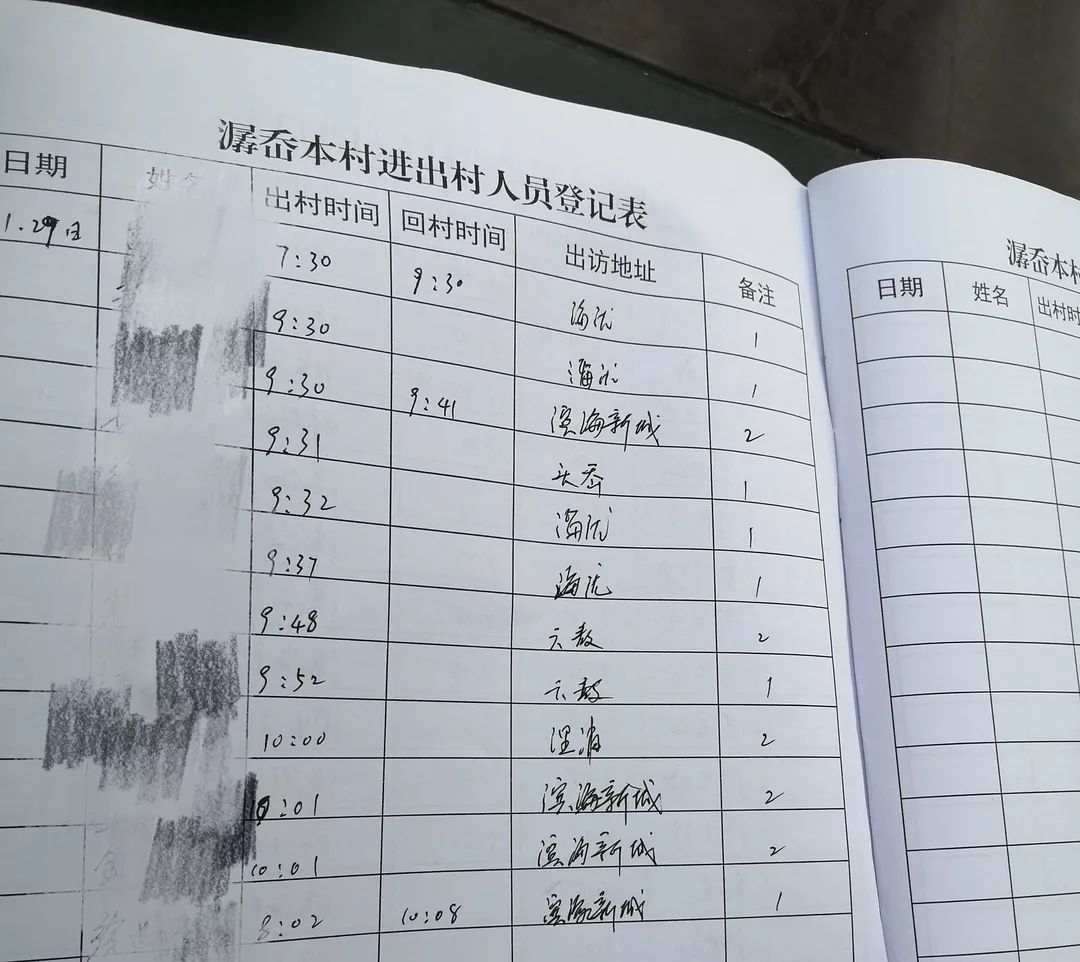 潺岙本村进出村人员登记表
日期 姓名 出村时间 回村时间 出访地址 备注
1.29日 7:30 9:30 海优 1
9:30 海优 1
9:30 9:41 滨海新城 2
9:31 头岙 1
9:32 海优 1
9:37 海优 1
9:48 六敖 2
9:52 六敖 1
10:00 浬浦 2
10:01 滨海新城 2
10:01 滨海新城 2
8:02 10:08 滨海新城 1
潺岙本村
日期 姓名 出村时